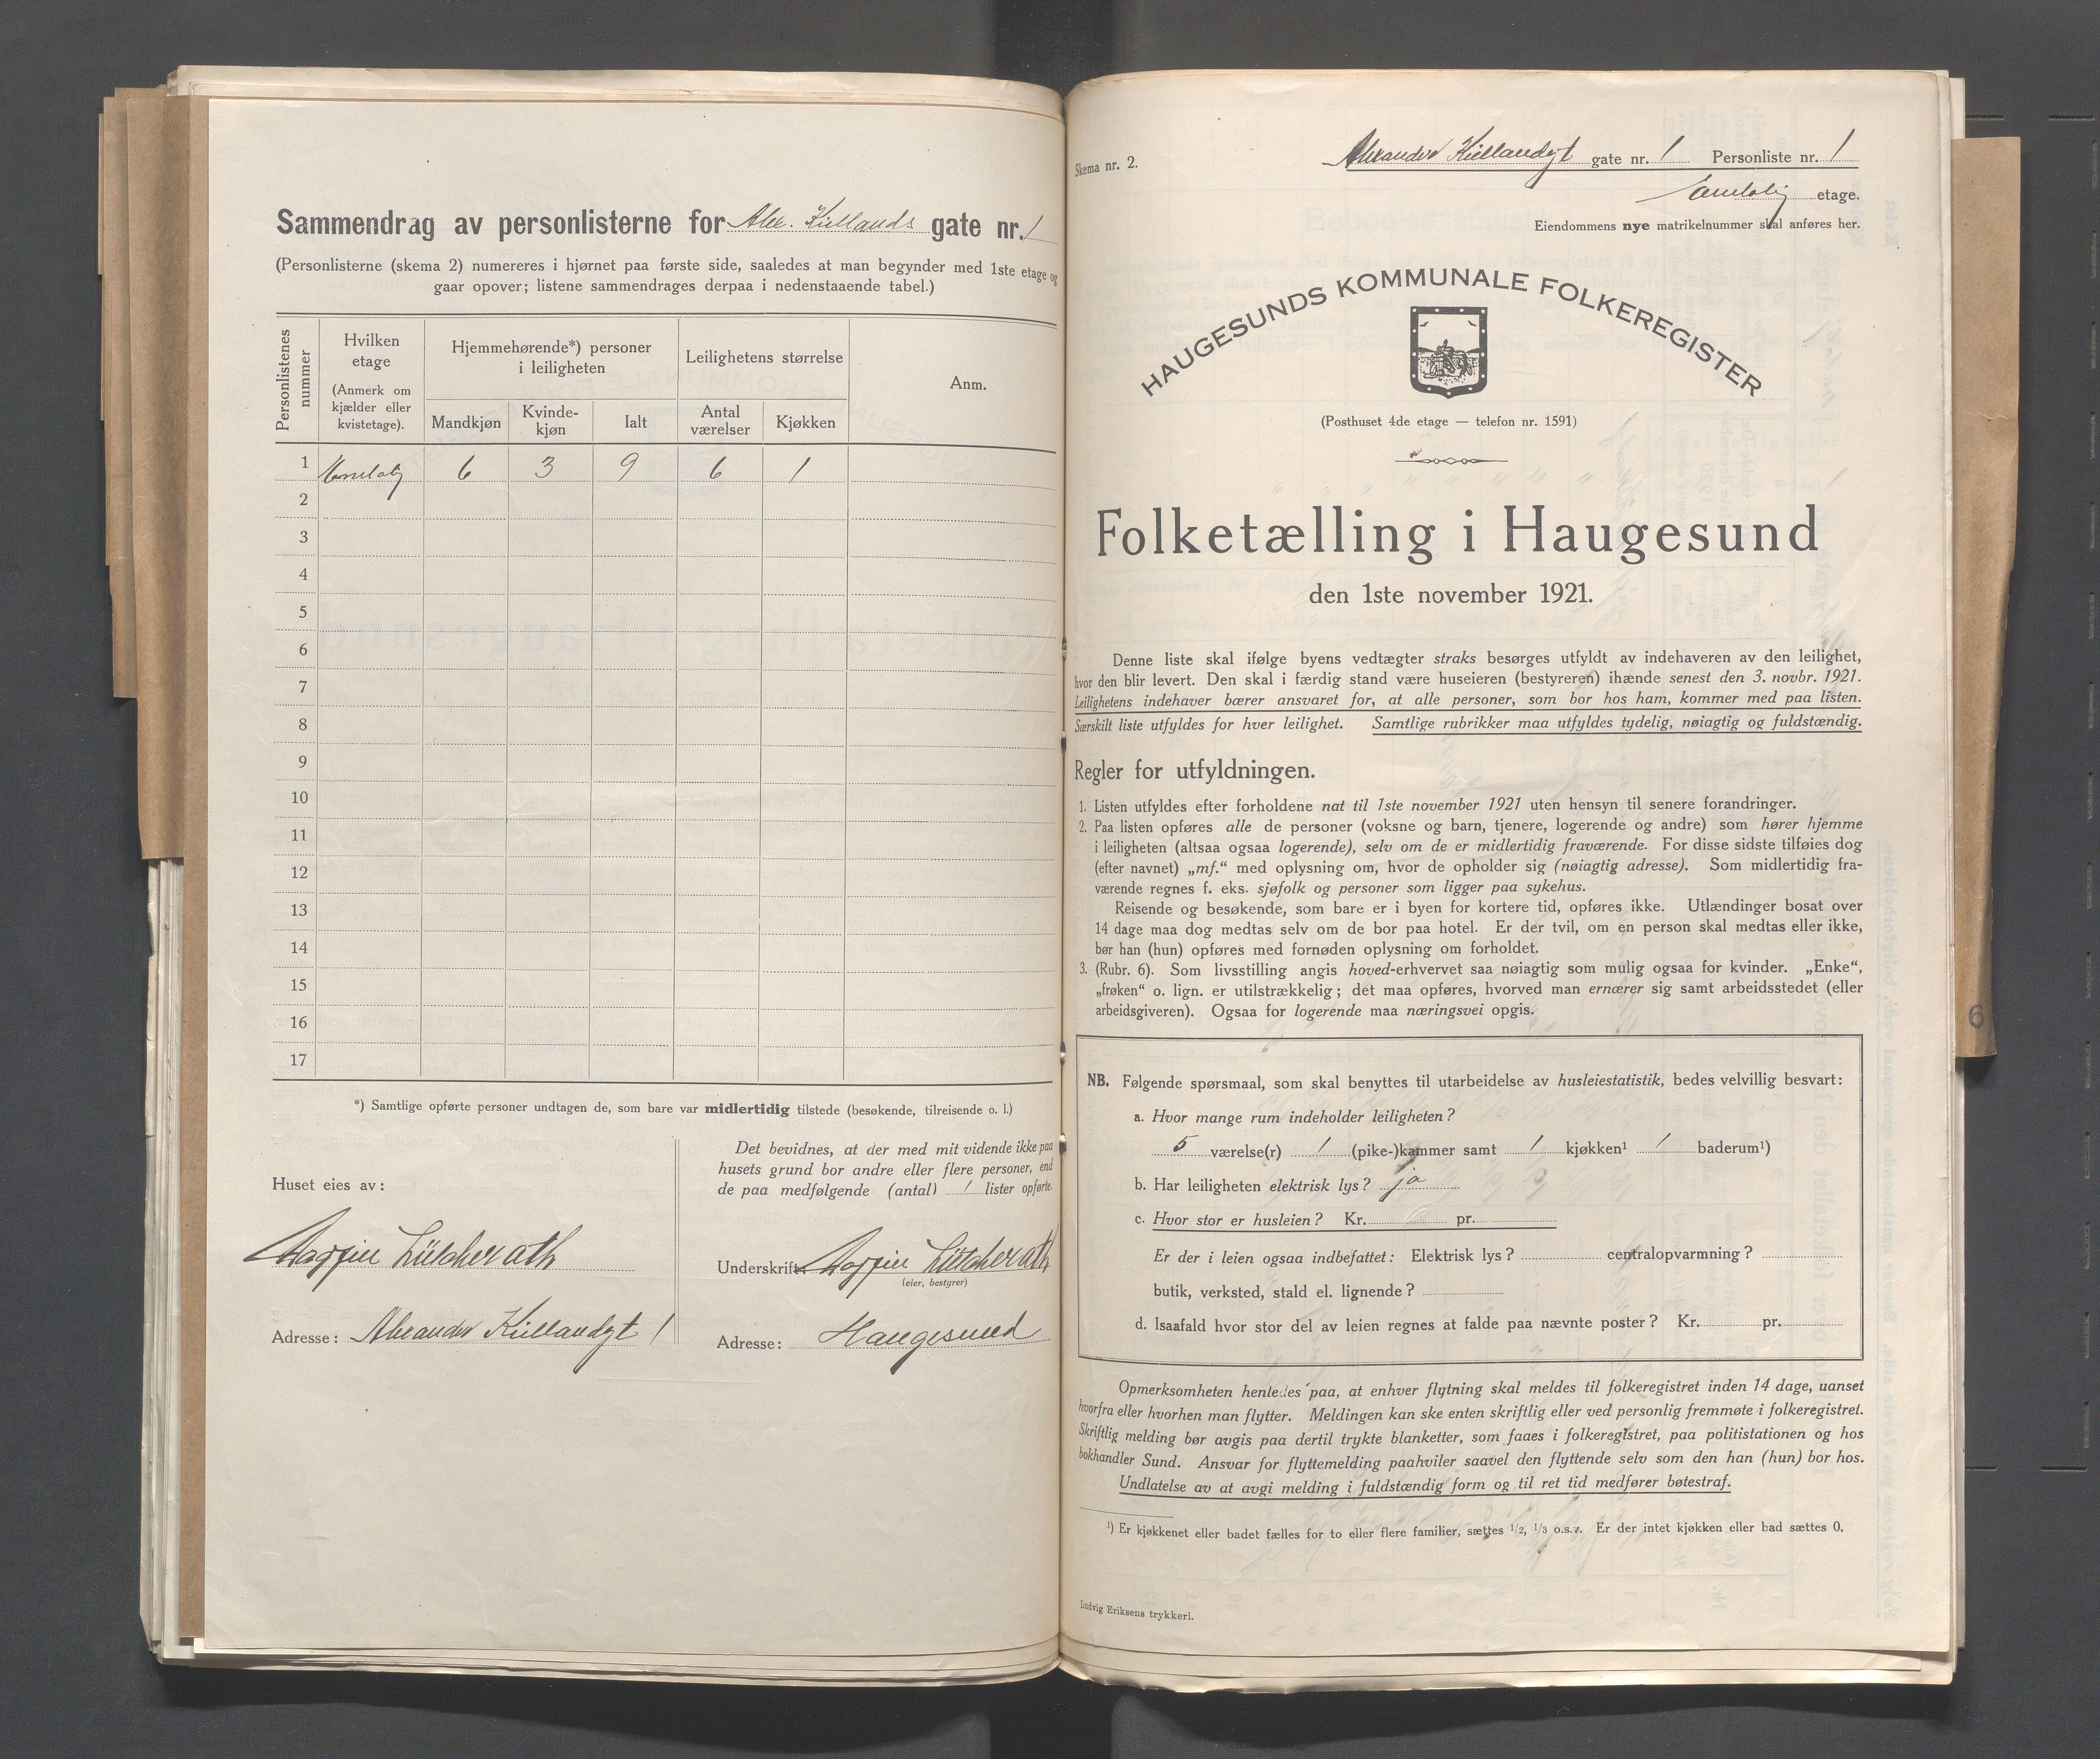 Sammendrag av personlisterne for Alex. Kiellands gate nr. 1
(Personlisterne (skema 2) numereres i hjørnet paa første side, saaledes at man begynder med 1ste etage og
gaar opover; listene sammendrages derpaa i nedenstaaende tabel.)
Personlistenes nummer
Hvilken etage
(Anmerk om kjælder eller kvistetage).
Hjemmehørende*) personer i leiligheten
Leilighetens størrelse
Anm.
Mandkjøn
Kvinde-kjøn
Ialt
Antal værelser
Kjøkken
1 6 3 9 6 1
2
3
4
5
6
7
8
9
10
11
12
13
14
15
16
17
*) Samtlige opførte personer undtagen de, som bare var midlertidig tilstede (besøkende, tilreisende o. l.)
Huset eies av:
Lütcherath
Adresse: Alexander Kiellandgt 1
Det bevidnes, at der med mit vidende ikke paa
husets grund bor andre eller flere personer, end
de paa medfølgende (antal) 1 lister opførte.
Underskrift: Lütcherath
(eier, bestyrer)
Adresse: Haugesund
Skema nr. 2.
Alexander Kiellandgt gate nr. 1 Personliste nr. 1
etage.
Eiendommens nye matrikelnummer skal anføres her.
HAUGESUNDS KOMMUNALE FOLKEREGISTER
(Posthuset 4de etage — telefon nr. 1591)
Folketælling i Haugesund
den 1ste november 1921.
Denne liste skal ifølge byens vedtægter straks besørges utfyldt av indehaveren av den leilighet,
hvor den blir levert. Den skal i færdig stand være huseieren (bestyreren) ihænde senest den 3. novbr. 1921.
Leilighetens indehaver bærer ansvaret for, at alle personer, som bor hos ham, kommer med paa listen.
Særskilt liste utfyldes for hver leilighet. Samtlige rubrikker maa utfyldes tydelig, nøiagtig og fuldstændig.
Regler for utfyldningen.
1. Listen utfyldes efter forholdene nat til 1ste november 1921 uten hensyn til senere forandringer.
2. Paa listen opføres alle de personer (voksne og barn, tjenere, logerende og andre) som hører hjemme
i leiligheten (altsaa ogsaa logerende), selv om de er midlertidig fraværende. For disse sidste tilføies dog
(efter navnet) „mf.“ med oplysning om, hvor de opholder sig (nøiagtig adresse). Som midlertidig fra-
værende regnes f. eks. sjøfolk og personer som ligger paa sykehus.
Reisende og besøkende, som bare er i byen for kortere tid, opføres ikke. Utlændinger bosat over
14 dage maa dog medtas selv om de bor paa hotel. Er der tvil, om en person skal medtas eller ikke,
bør han (hun) opføres med fornøden oplysning om forholdet.
3. (Rubr. 6). Som livsstilling angis hoved-erhvervet saa nøiagtig som mulig ogsaa for kvinder. „Enke“,
„frøken“ o. lign. er utilstrækkelig; det maa opføres, hvorved man ernærer sig samt arbeidsstedet (eller
arbeidsgiveren). Ogsaa for logerende maa næringsvei opgis.
NB. Følgende spørsmaal, som skal benyttes til utarbeidelse av husleiestatistik, bedes velvillig besvart:
a. Hvor mange rum indeholder leiligheten?
5 værelse(r) 1 (pike-)kammer samt 1 kjøkken¹ 1 baderum¹)
b. Har leiligheten elektrisk lys? ja
c. Hvor stor er husleien? Kr. pr.
Er der i leien ogsaa indbefattet: Elektrisk lys? centralopvarmning?
butik, verksted, stald el. lignende?
d. Isaafald hvor stor del av leien regnes at falde paa nævnte poster? Kr. pr.
Opmerksomheten henledes paa, at enhver flytning skal meldes til folkeregistret inden 14 dage, uanset
hvorfra eller hvorhen man flytter. Meldingen kan ske enten skriftlig eller ved personlig fremmøte i folkeregistret.
Skriftlig melding bør avgis paa dertil trykte blanketter, som faaes i folkeregistret, paa politistationen og hos
bokhandler Sund. Ansvar for flyttemelding paahviler saavel den flyttende selv som den han (hun) bor hos.
Undlatelse av at avgi melding i fuldstændig form og til ret tid medfører bøtestraf.
¹) Er kjøkkenet eller badet fælles for to eller flere familier, sættes 1/2, 1/3 o.s.v. Er der intet kjøkken eller bad sættes 0.
Ludvig Eriksens trykkeri.
6